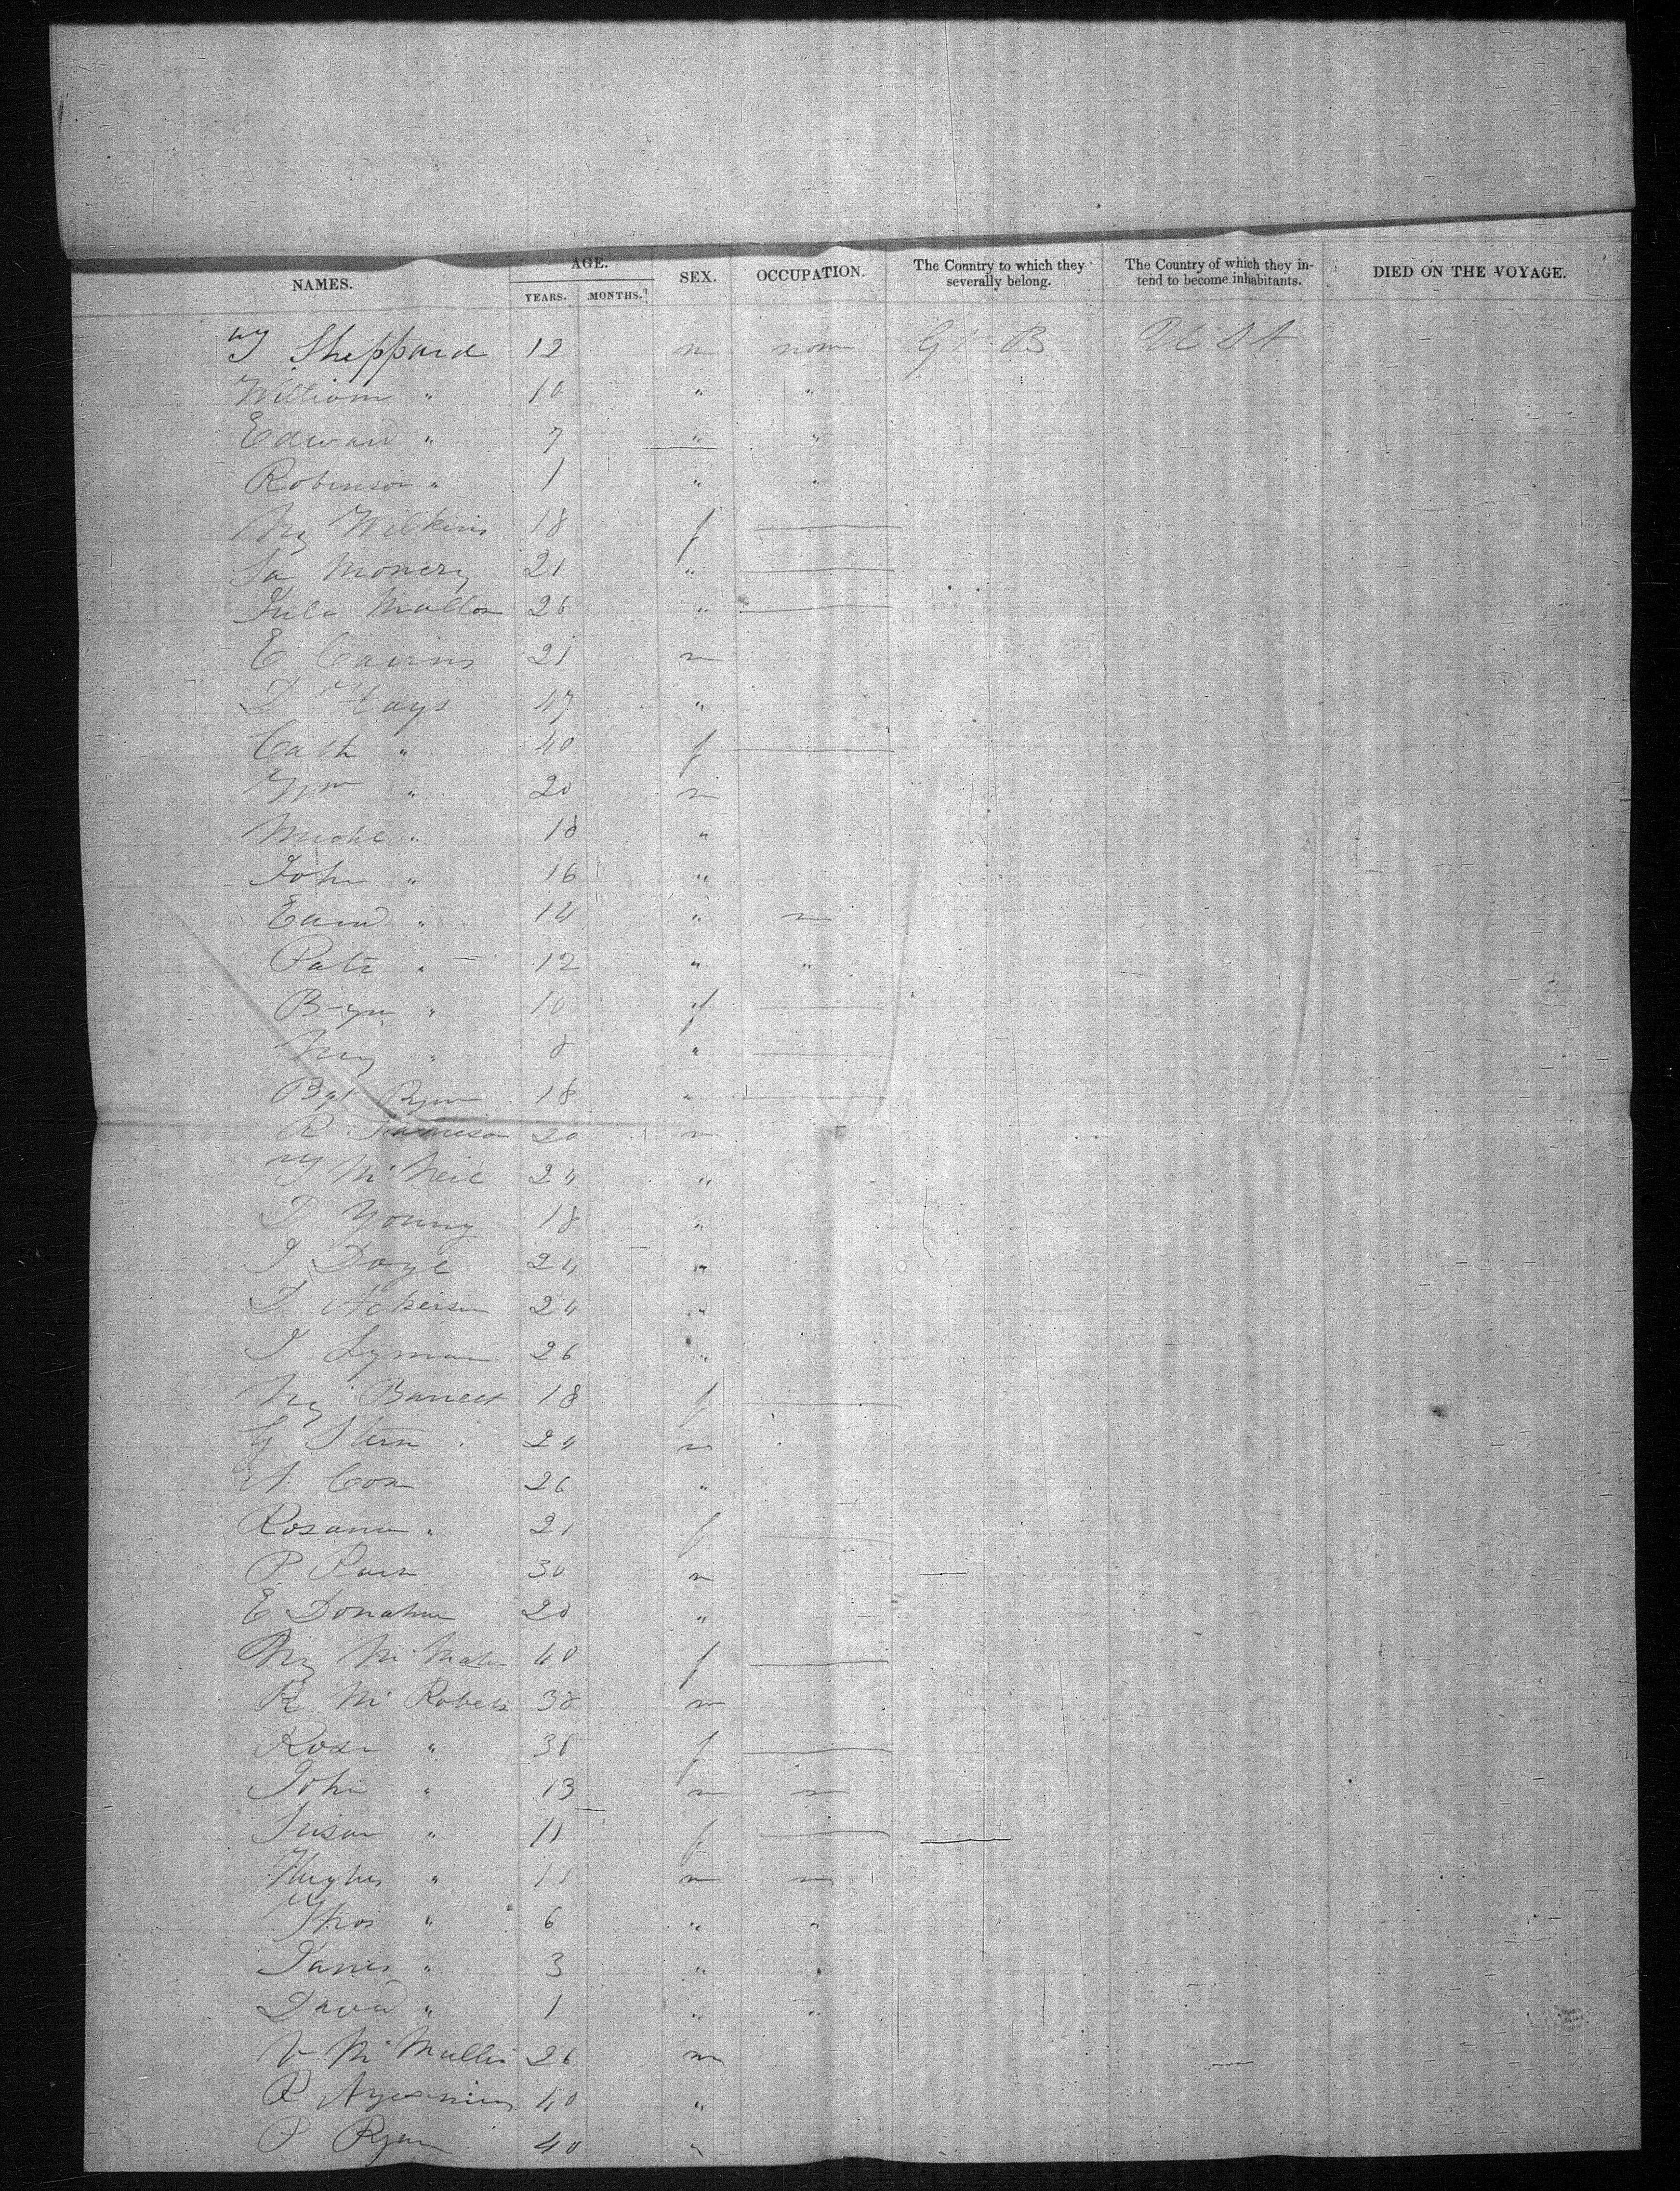 NAMES. AGE. YEARS. MONTHS. SEX. OCCUPATION. The Country to which they severally belong. The Country of which they intend to become inhabitants. DIED ON THE VOYAGE.
Sheppard 12 m none Gt B U S A
William " 10 " "
Edward " 7 " "
Robinson " 1 " "
My Wilkins 18 f
21 "
26 "
E Cairns 21 m
D Hays 47 "
Cath " 40 f
Wm " 20 m
Michl " 18 "
John " 16 "
Edwd " 14 " n
Patr " 12 " "
" 10 f
My " 8 "
Bgt Ryan 18 "
R Jameson 20 m
McNeil 24 "
D Young 18 "
24 "
24 "
J Lyman 26 "
My Barrett 18 f
Stern 24 m
A Cox 26 "
Rosanna " 21 f
P 30 m
E Donahue 20 "
My 40 f
R McRoberts 38 m
Rose " 36 f
John " 13 m n
Susan " 11 f
Hughes " 11 m n
Thos " 6 " "
James " 3 " "
David " 1 " "
26 m
R 40 "
P Ryan 40 "